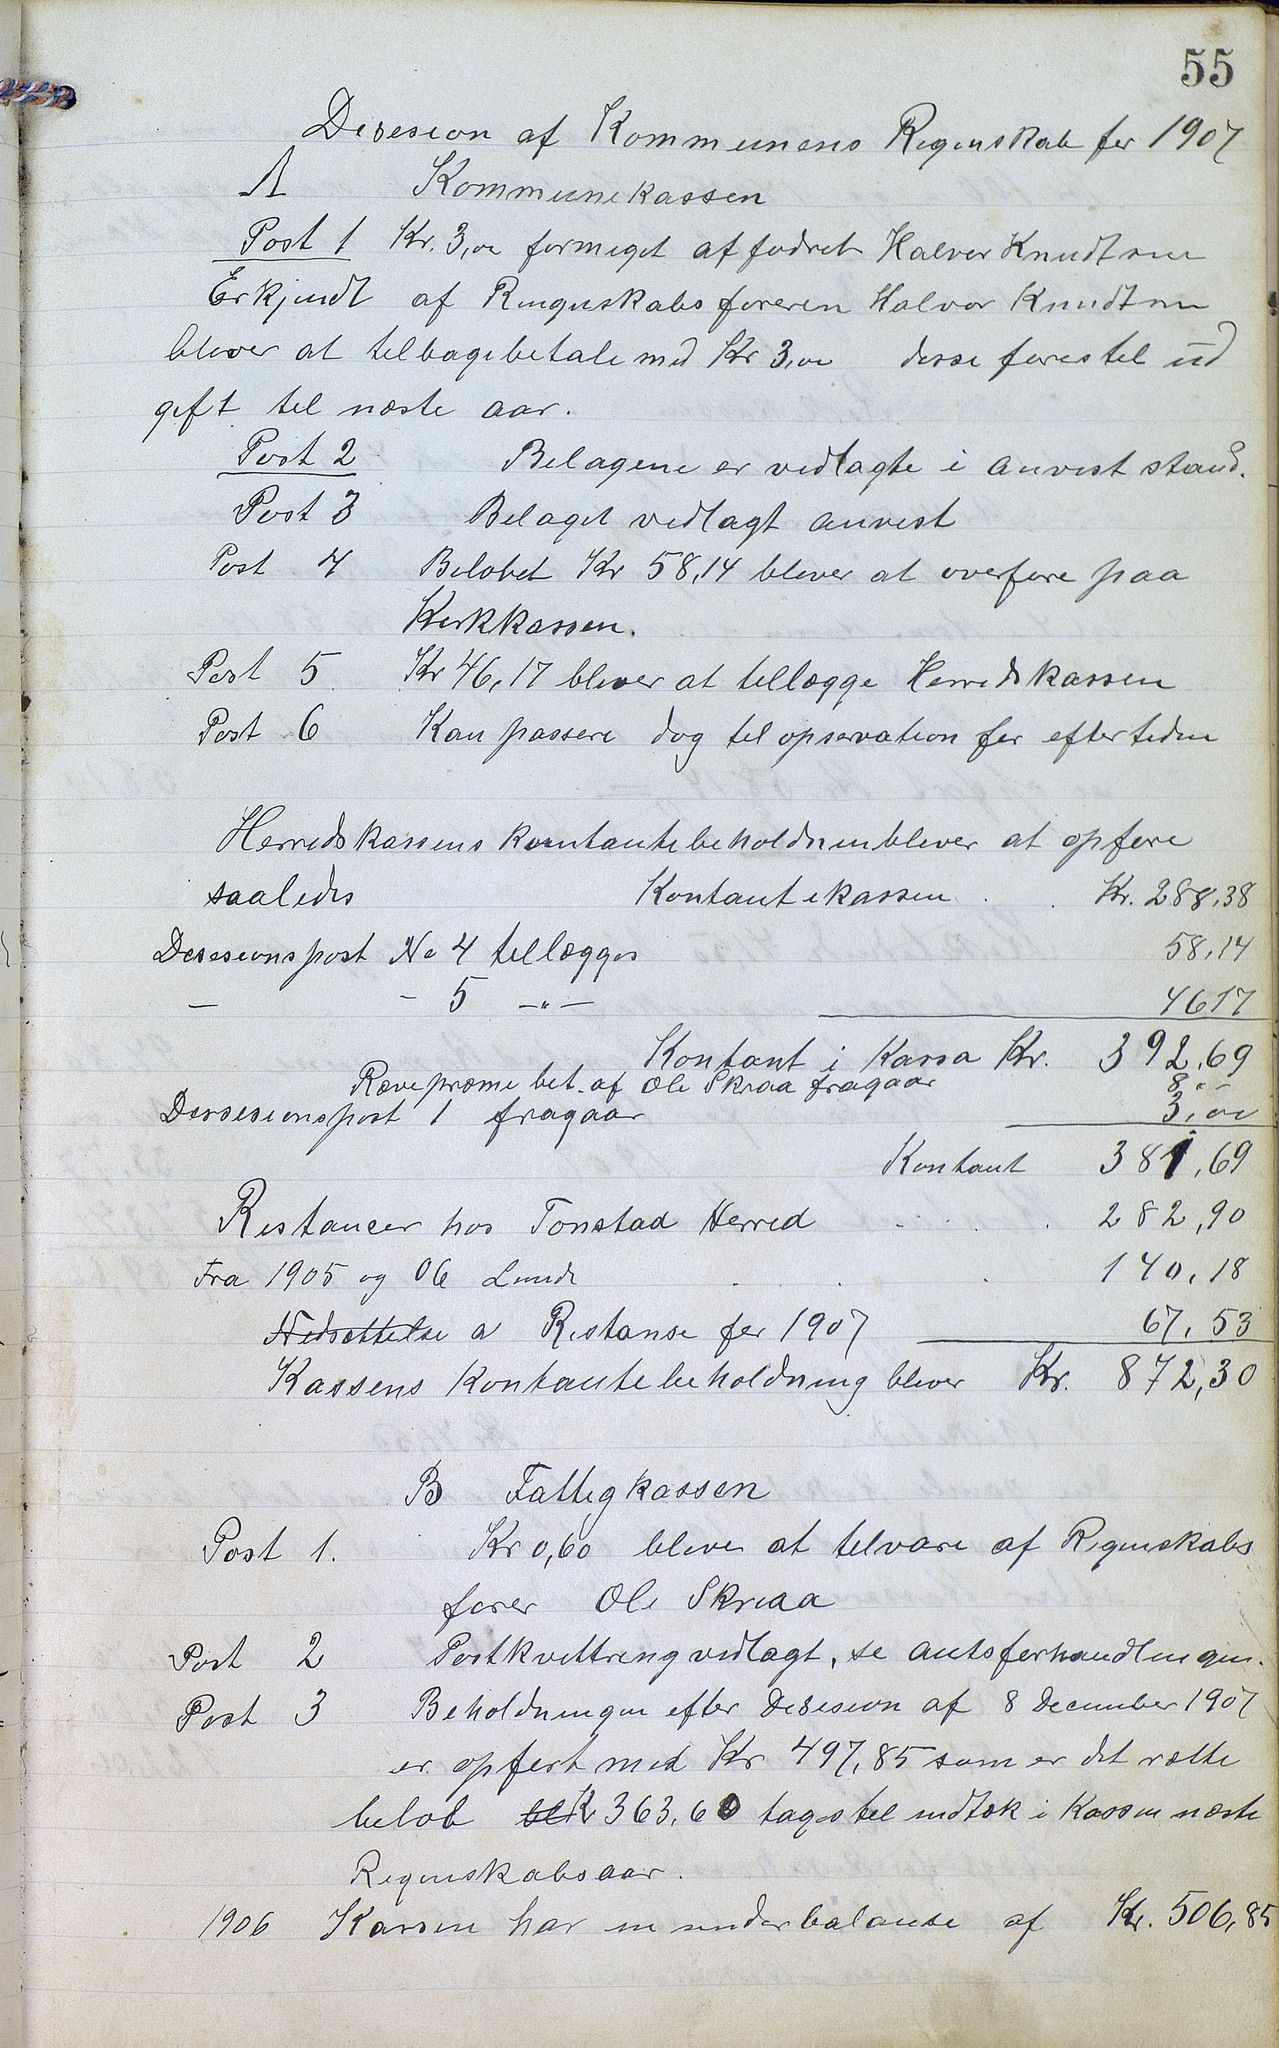 55
Desesion af Kommunens Regnskab for 1907
A Kommunekassen
Post 1 Kr. 3,00 formeget affodret Halvor Knudtsen
Erkjendt af Rengnskabsføreren Halvor Knudtsen
bliver at tilbagebetale med Kr 3,00 disse føres til ud
gift til næste aar.
Post 2 Belagene er vedlagte i anvist stand.
Post 3 Belaget vedlagt anvist
Post 4 Beløbet Kr 58,14 bliver at overføre paa
Kirkkassen.
Post 5 Kr 46,17 bliver at tillægge Herredskassen
Post 6 Kan passere dog til opservation for eftertiden
Herredskassens kontantebeholdnin bliver at opføre
saaledes Kontant i kassen . . Kr. 288,38
Desesionspost No 4 tillægges 58,14
— - 5 —"— 4617
Kontant i Kassa Kr. 392,69
Rævepræme bet. af Ole Skraa fragaar 8"-
Dessesionspost 1 fragaar 3,00
Kontant 381,69
Restancer hos Tonstad Herred . . . . 282,90
Fra 1905 og 06 Lunde . . . 140,18
Nedsættelse a Restanse for 1907 67,53
Kassens Kontantebeholdning bliver Kr. 872,30
B Fattigkassen
Post 1. Kr 0,60 bliver at tilvare af Regnskabs
fører Ole Skraa
Post 2 Postkvittring vedlagt, se amtsforhandlingen.
Post 3 Beholdningen efter Desesion af 8 December 1907
er opført med Kr 497,85 som er det rette
beløb Kr 363,60 tages til indtæk i Kassen næste
Regnskabsaar.
1906 Kassen har en underbalanse af Kr. 506,85